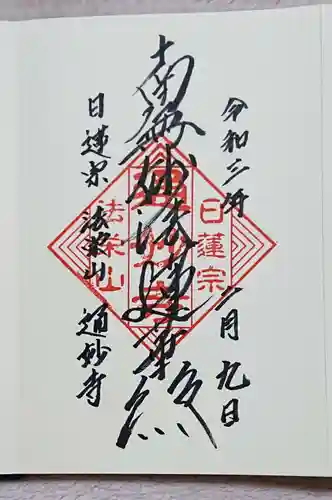 令和三年二月九日
南無妙法蓮華経
日蓮宗 法栄山 通妙寺
日蓮宗
法栄山